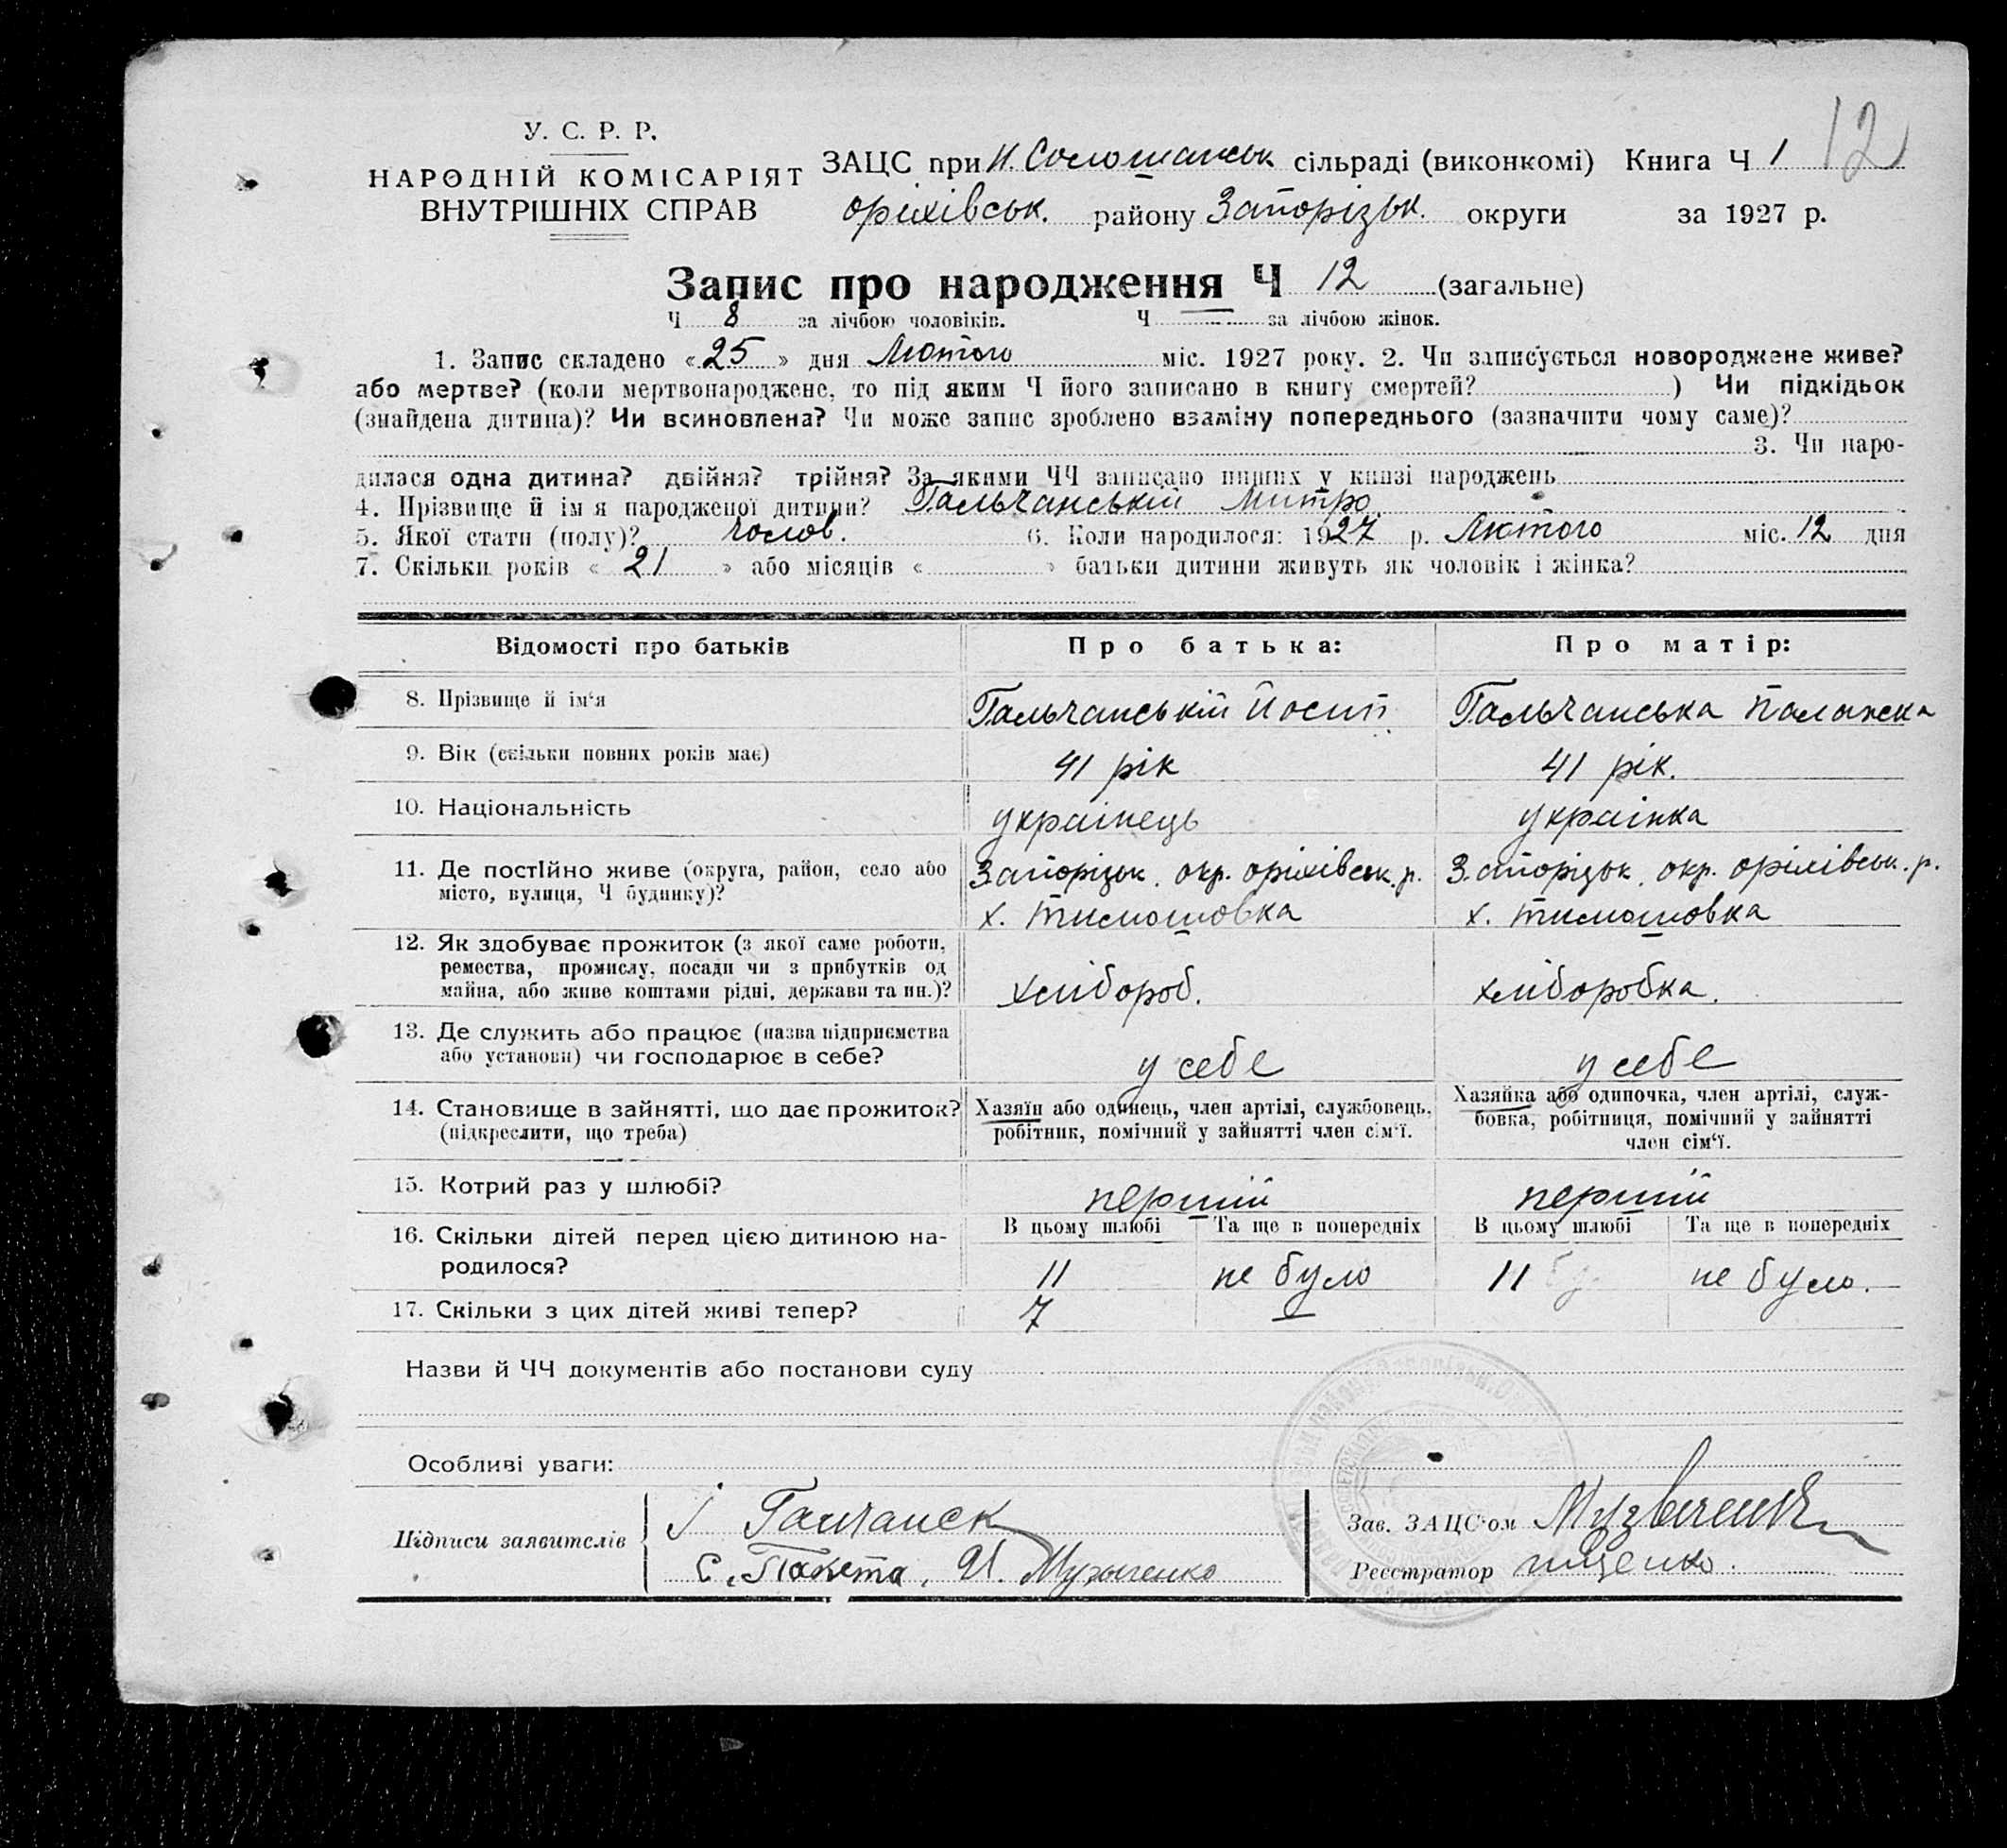 У. С. Р. Р.
НАРОДНІЙ КОМІСАРІЯТ
ВНУТРІШНІХ СПРАВ
ЗАЦС при сільраді (виконкомі) Книга Ч 1 12
оріхівськ. району Запорізьк. округи за 1927 р.
Запис про народження Ч 12 (загальне)
Ч 8 за лічбою чоловіків. Ч — за лічбою жінок.
1. Запис складено «25» дня Лютого міс. 1927 року. 2. Чи записується новороджене живе?
або мертве? (коли мертвонароджене, то під яким Ч його записано в книгу смертей? ) Чи підкідьок
(знайдена дитина)? Чи всиновлена? Чи може запис зроблено взаміну попереднього (зазначити чому саме)?
3. Чи наро-
дилася одна дитина? двійня? трійня? За якими ЧЧ записано инших у книзі народжень
4. Прізвище й ім я народженої дитини? Гальчанській Митро
5. Якої стати (полу)? чолов. 6. Коли народилося: 1927 р. Лютого міс. 12 дня
7. Скільки років «21» або місяців « » батьки дитини живуть як чоловік і жінка?
Відомості про батьків Про батька: Про матір:
8. Прізвище й ім'я Гальчанській Йосип Гальчанська Палажка
9. Вік (скільки повних років має) 41 рік 41 рік.
10. Національність українець українка
11. Де постійно живе (округа, район, село або Запорізьк. окр. оріхівськ. р. Запорізьк. окр. оріхівськ. р.
місто, вулиця, Ч будинку)? х. Тимошовка х. Тимошовка
12. Як здобуває прожиток (з якої саме роботи,
ремества, промислу, посади чи з прибутків од
майна, або живе коштами рідні, держави та ин.)? хлібороб. хліборобка.
13. Де служить або працює (назва підприємства
або установи) чи господарює в себе? у себе у себе
14. Становище в зайнятті, що дає прожиток? Хазяїн або одинець, член артілі, службовець, Хазяйка або одиночка, член артілі, служ-
(підкреслити, що треба) робітник, помічний у зайнятті член сім'ї. бовка, робітниця, помічний у зайнятті
член сім'ї.
15. Котрий раз у шлюбі? першій першій
В цьому шлюбі Та ще в попередніх В цьому шлюбі Та ще в попередніх
16. Скільки дітей перед цією дитиною на-
родилося? 11 не було 11 не було.
17. Скільки з цих дітей живі тепер? 7 —
Назви й ЧЧ документів або постанови суду
Особливі уваги:
Підписи заявителів Зав. ЗАЦС'ом
И. Музыченко Реєстратор